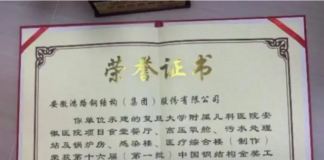 荣誉证书
安徽鸿路钢结构（集团）股份有限公司
你单位承建的复旦大学附属儿科医院安
徽医院项目食堂餐厅、高压氧舱、污水处理
站及锅炉房、感染楼、医疗综合楼（制作）
荣获第十六届（第一批）中国钢结构金奖工